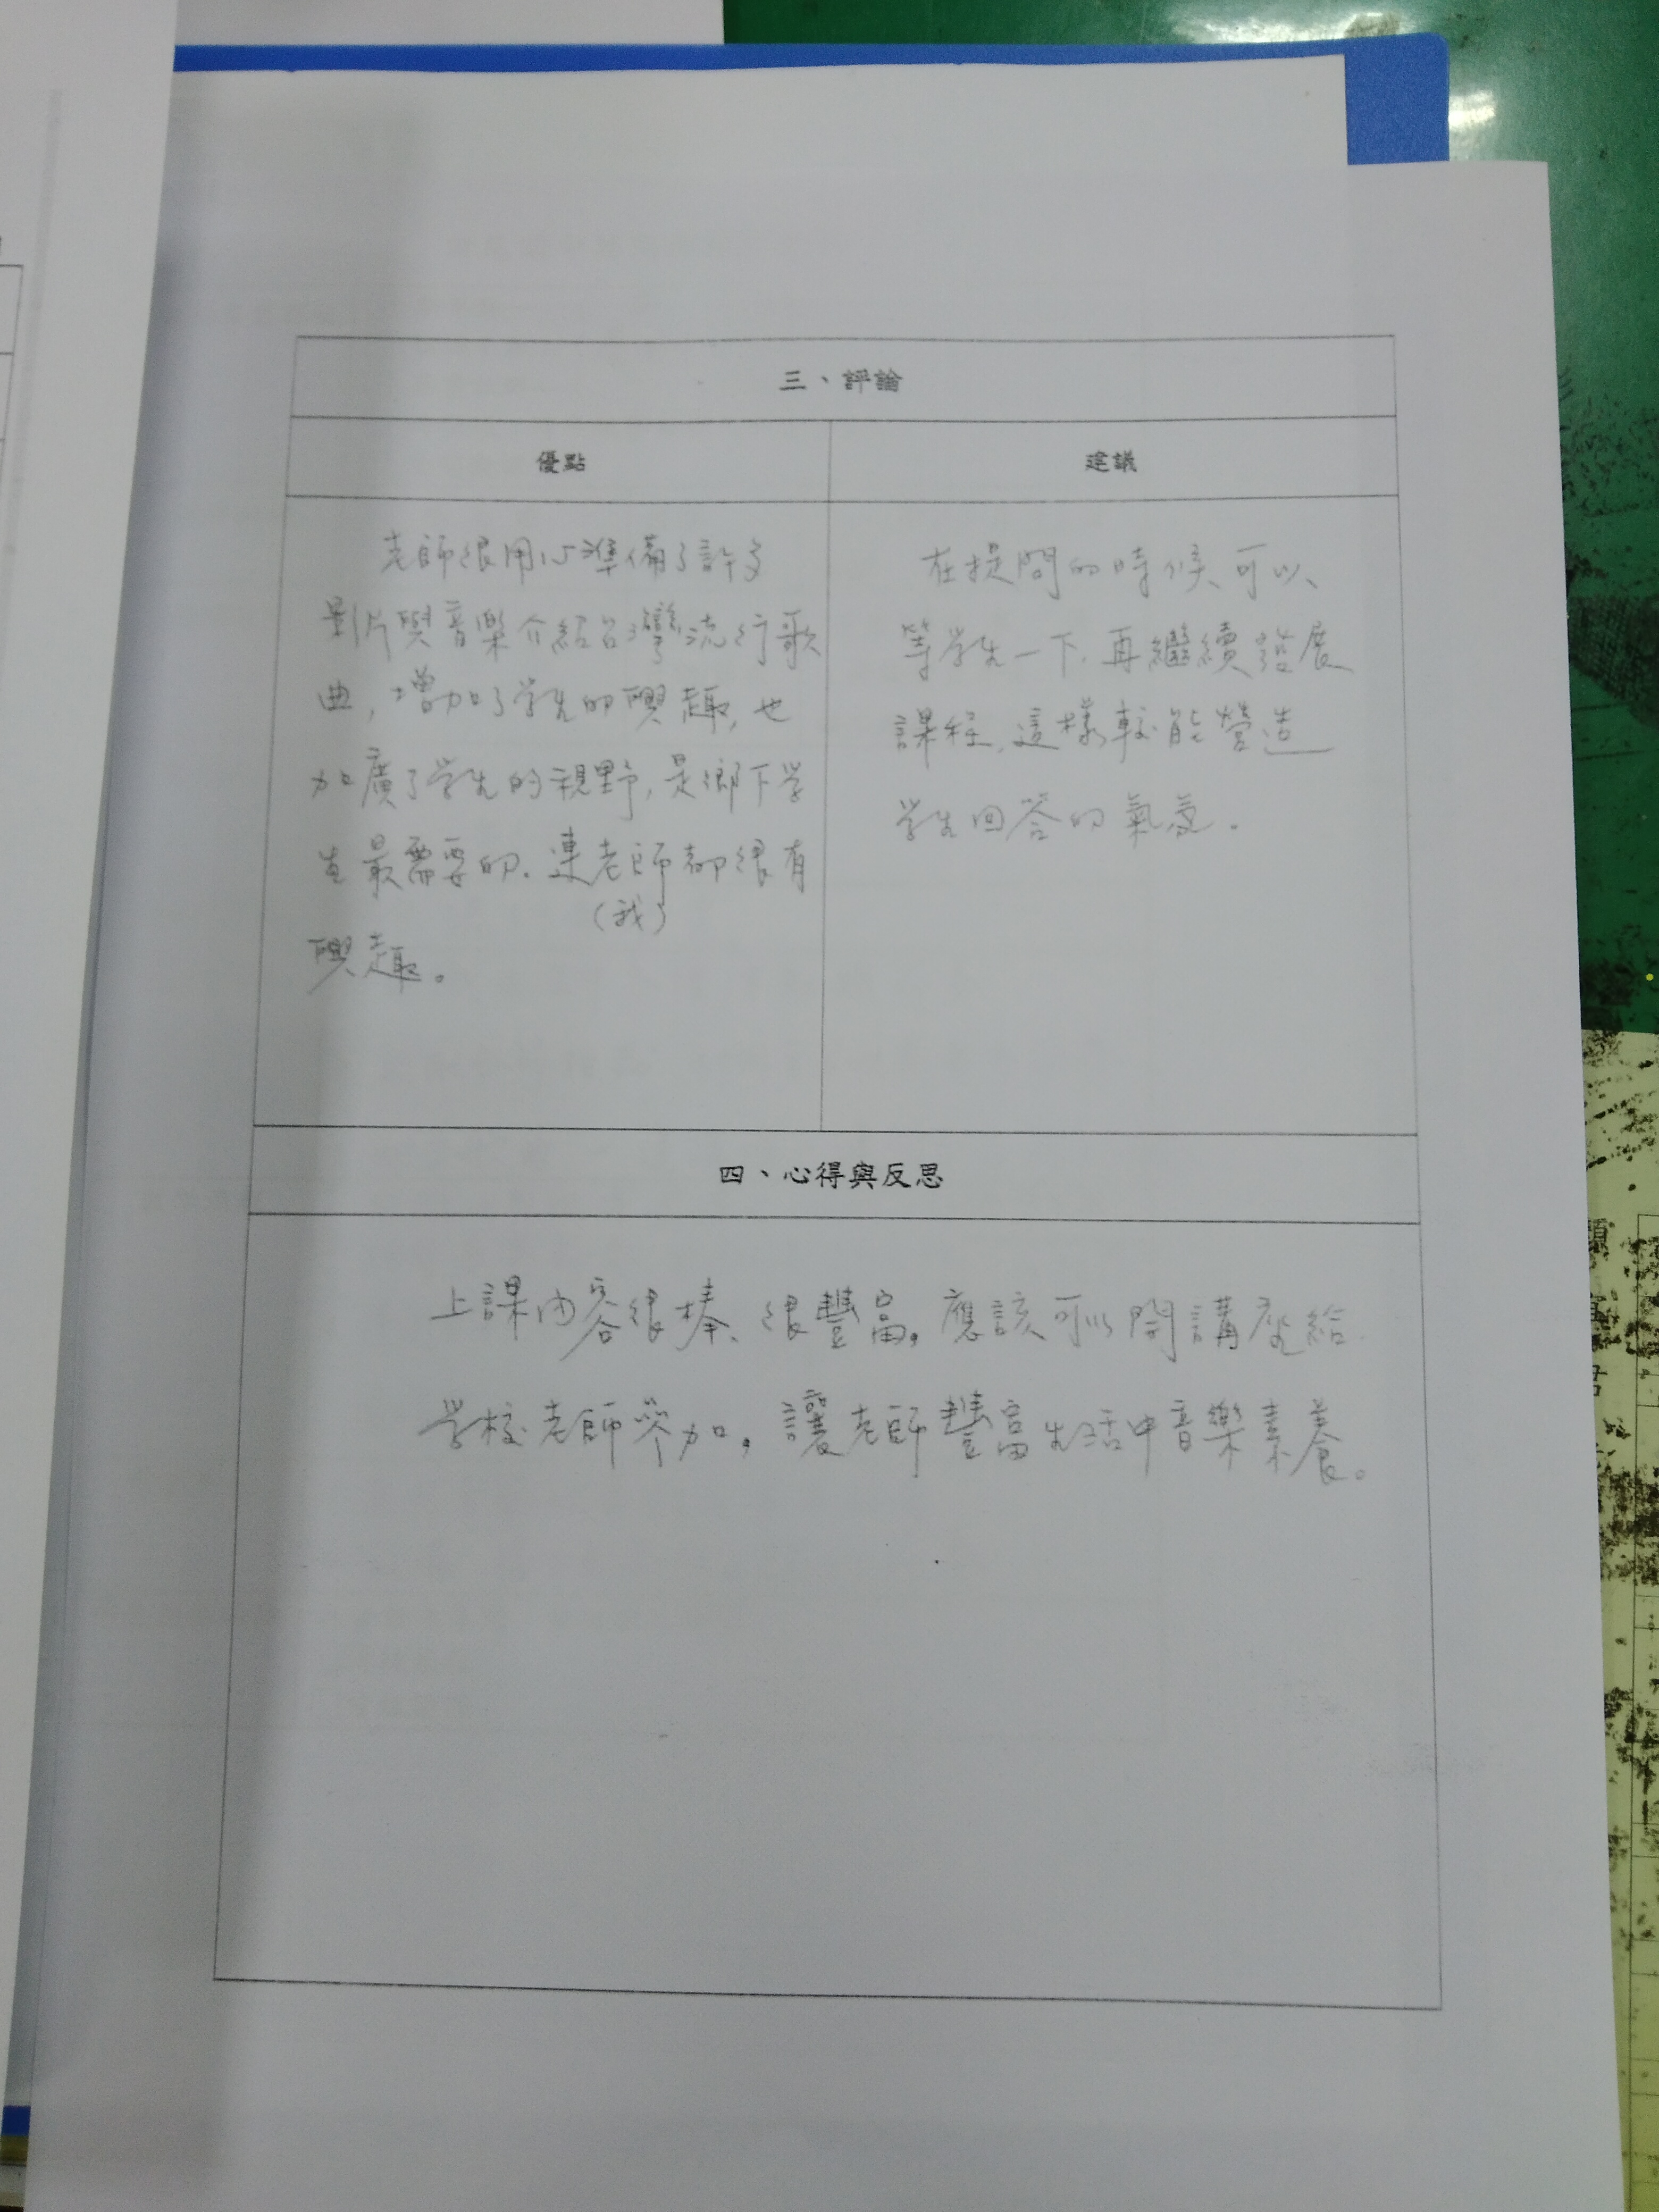 三、評論
優點
建議
老師很用心準備了許多
影片與音樂介紹台灣流行歌
曲，增加了学生的興趣，也
加廣了学生的視野，是鄉下学
生最需要的．連老師都很有
（我）
興趣。
在提問的時候、可以、
等学生一下．再繼續 展
課程，這樣較能營造
学生回答的氣氛。
四、心得與反思
上課內容很棒、很豐富。應該可以開講座給
学校老師參加，讓老師豐富生活中音樂素養。
題